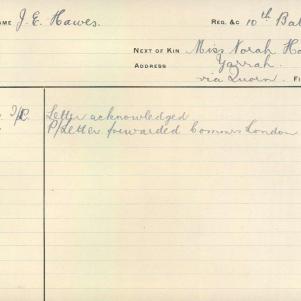 NAME J. E. Hawes. REG. &C 10th Bat
NEXT OF KIN Miss Norah Ha
ADDRESS Yarrah.
via Quorn. FI
Letter acknowledged
P/Letter forwarded Commrs London